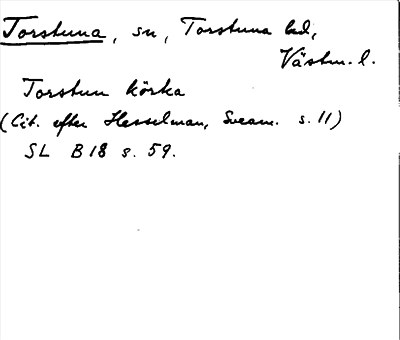 Torstuna, sn, Torstuna hd,
Västm. l.
Torstun körka
(Cit. efter Hesselman, Sveam. s. 11)
SL B 18 s. 59.